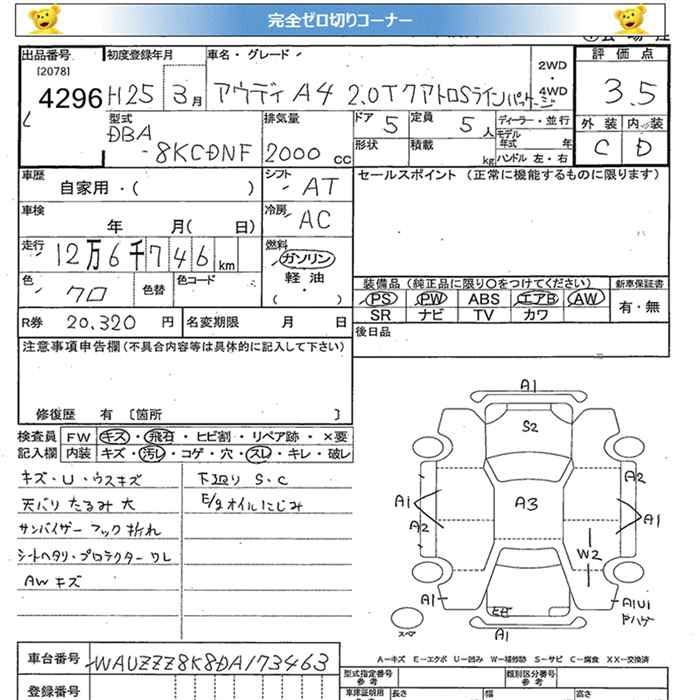 完全ゼロ切りコーナー
出品番号 初度登録年月 車名・グレード 評価点
[2078] 2WD
4296 H25 3月 アウディ A4 2.0Tクアトロ Sラインパッケージ ・4WD 3.5
型式 排気量 ドア 5 定員 5人 ディーラー・並行 外装 内装
DBA モデル年式 年
-8KCDNF 2000cc 形状 積載 kg ハンドル 左・右 C D
車歴 シフト AT セールスポイント (正常に機能するものに限ります)
自家用・( )
車検 冷房 AC
年 月( 日)
走行 燃料
12万6千746km ガソリン
色 色替 色コード 軽油 装備品 (純正品に限り○をつけてください) 新車保証書
クロ ・( ) PS PW ABS エアB AW 有・無
SR ナビ TV カワ
R券 20,320円 名変期限 月 日 後日品
注意事項申告欄(不具合内容等は具体的に記入して下さい)
修復歴 有 〔箇所 〕
検査員 FW キズ・飛石・ヒビ割・リペア跡・×要
記入欄 内装 キズ・汚レ・コゲ・穴・スレ・キレ・破レ
キズ・U・ウスキズ 下廻り S・C
天バリ たるみ 大 E/g オイルにじみ
サンバイザー フック 折れ
シートヘタリ・プロテクター ワレ
AW キズ
A1
S2
A2
A1 A3
A2 A1
W2
A1 A1U1
ヒビ
A1
A-キズ E-エクボ U-凹み W-補修跡 S-サビ C-腐食 XX-交換済
車台番号 WAUZZZ8K8DA173463
登録番号
型式指定番号 参考 類別区分番号 参考
長さ 幅 高さ